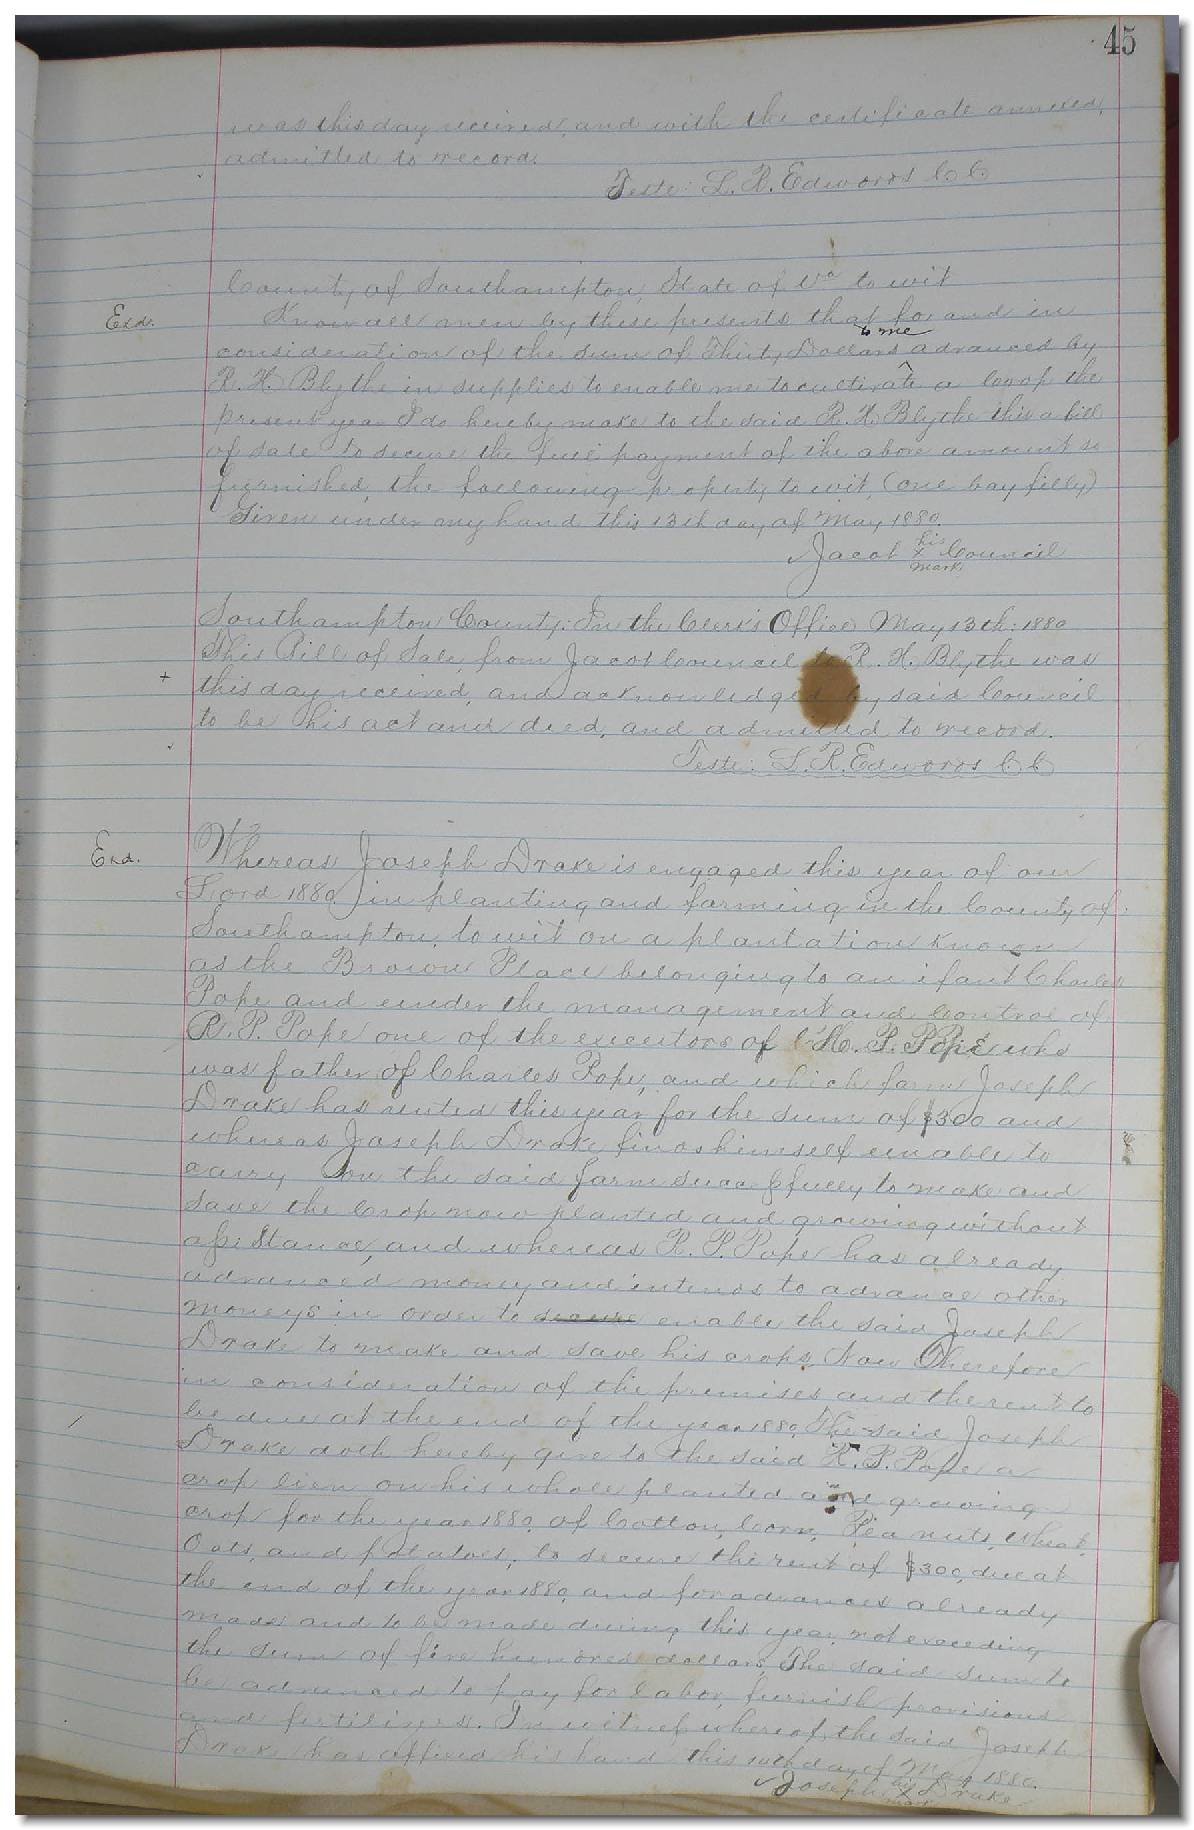 45
was this day received, and with the certificate annexed,
admitted to record.
Teste: L. R. Edwards C C
County of Southampton, State of Va to wit
Exd.
Know all men by these presents that for and in
to me
consideration of the sum of Thirty Dollars ^ advanced by
R. H. Blythe in supplies to enable me to cultivate a Crop the
present year I do hereby make to the said R. H. Blythe this a bill
of sale to secure the full payment of the above amount so
furnished, the following property to wit, (one bay filly)
Given under my hand this 13th day of May 1880.
his
Jacob x Council
mark
Southampton County: In the Clerk's Office May 13th: 1880
This Bill of Sale, from Jacob Council to R. H. Blythe was
+ this day received, and acknowledged by said Council
to be his act and deed, and admitted to record.
Teste: L. R. Edwards C C
Exd.
Whereas Joseph Drake is engaged this year of our
Lord 1880 in planting and farming in the County of
Southampton, to wit on a plantation known
as the Brown Place belonging to an ifant Charles
Pope and under the management and control of
R. P. Pope one of the executors of H. P. Pope who
was father of Charles Pope, and which farm Joseph
Drake has rented this year for the sum of $300 and
whereas Joseph Drake finds himself unable to
carry on the said farm successfully to make and
save the Crop now planted and growing without
assistance, and whereas R. P. Pope has already
advanced money and intends to advance other
moneys in order to secure enable the said Joseph
Drake to make and save his crops, Now Therefore
in consideration of the premises and the rent to
be due at the end of the year 1880, The said Joseph
Drake doth hereby give to the said R. P. Pope a
crop lien on his whole planted and growing
crop for the year 1880, of Cotton, Corn, Pea nuts, wheat,
Oats, and potatoes, to secure the rent of $300, due at
the end of the year 1880, and for advances already
made and to be made during this year, not exceeding
the sum of five hundred dollars, The said sum to
be advanced to pay for labor, furnish provisions
and fertilizers. In witness whereof, the said Joseph
Drake has affixed his hand this 10th day of May 1880.
his
Joseph x Drake
mark